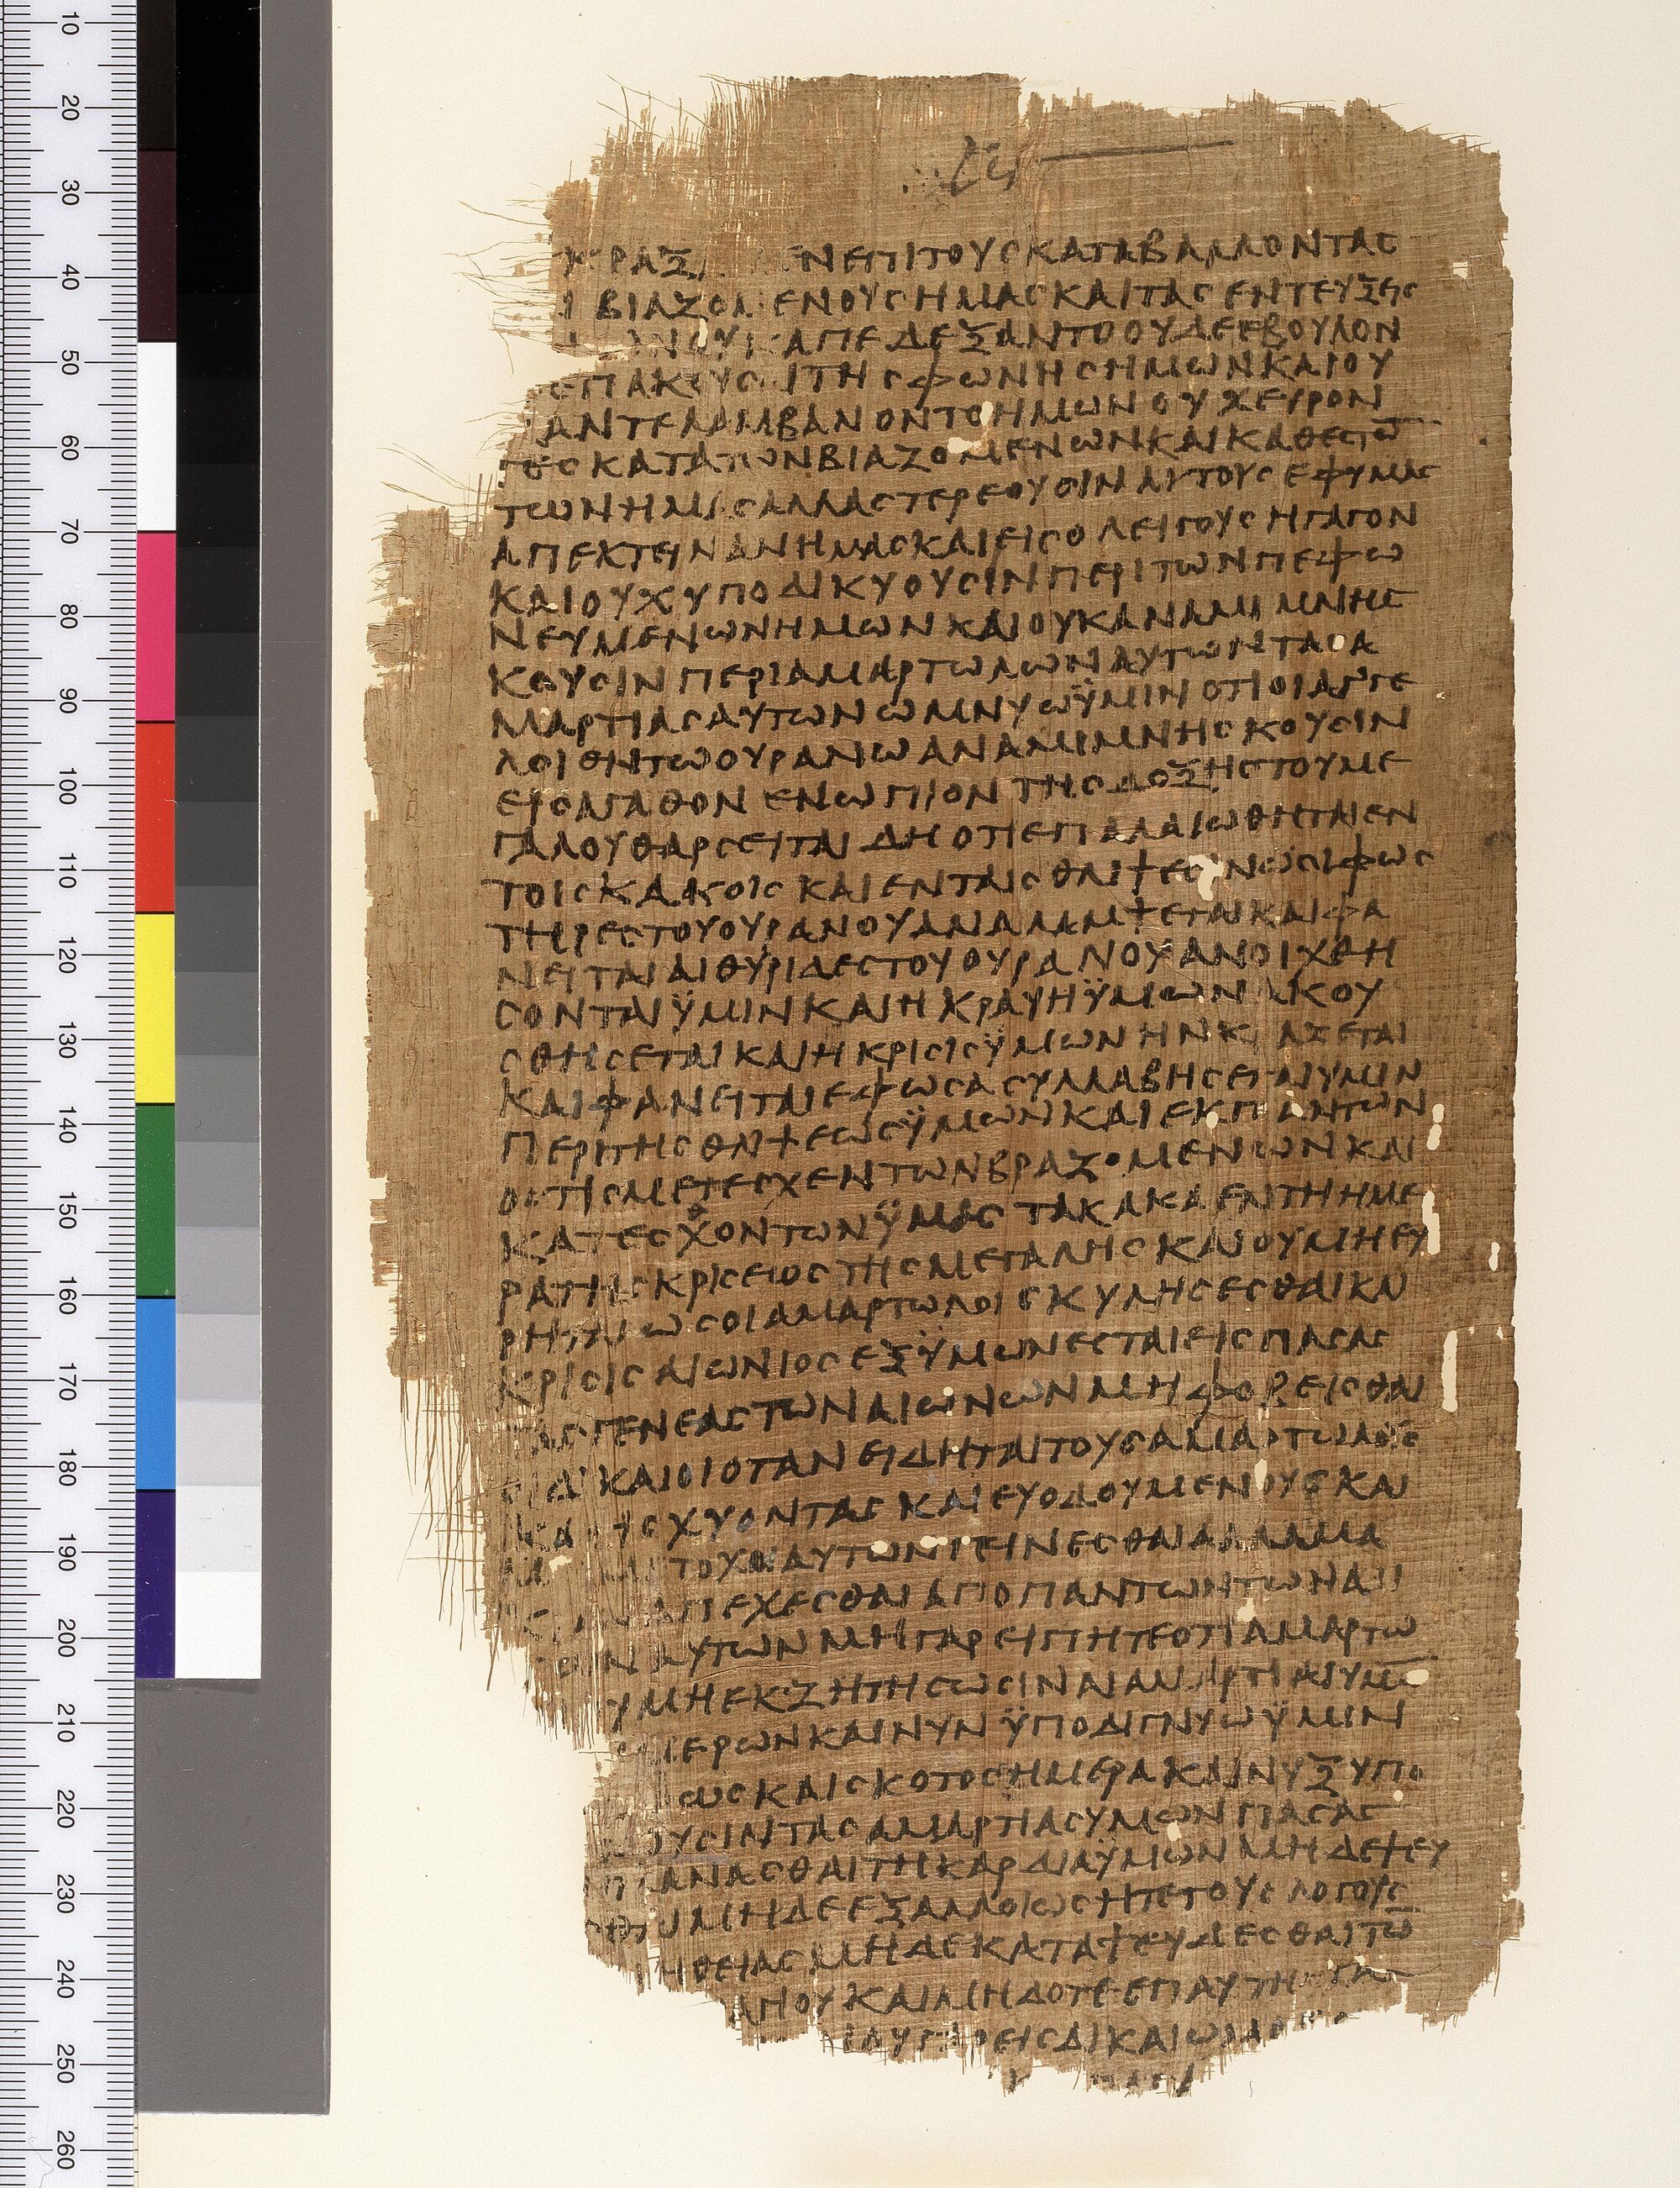 ΕΝΕΠΙΤΟΥϹΚΑΤΑΒΑΛΛΟΝΤΑϹ
ΒΙΑΖΟΜΕΝΟΥϹΗΜΑϹΚΑΙΤΑϹΕΝΤΕΥΞΕΙϹ
ΑΠΕΔΕΞΑΝΤΟΟΥΔΕΕΒΟΥΛΟΝ
ΕΠΑΚΟΥϹΑΙΤΗϹΦΩΝΗϹΗΜΩΝΚΑΙΟΥ
ΑΝΤΕΛΑΜΒΑΝΟΝΤΟΗΜΩΝΟΥΧΕΥΡΟΝ
ΤΕϹΚΑΤΑΤΩΝΒΙΑΖΟΜΕΝΩΝΚΑΙΚΑΘΕϹΤΩ̅
ΤΩΝΗΜΑϹΑΛΛΑϹΤΕΡΕΟΥϹΙΝΑΥΤΟΥϹΕΦΥΜΑϹ
ΑΠΕΚΤΕΙΝΑΝΗΜΑϹΚΑΙΕΙϹΟΛΕΙΓΟΥϹΗΓΑΓΟΝ
ΚΑΙΟΥΧΥΠΟΔΙΚΥΟΥϹΙΝΠΕΡΙΤΩΝΠΕΦΩ
ΝΕΥΜΕΝΩΝΗΜΩΝΚΑΙΟΥΚΑΝΑΜΙΜΝΗϹ
ΚΟΥϹΙΝΠΕΡΙΑΜΑΡΤΩΛΩΝΑΥΤΩΝΤΑϹΑ
ΜΑΡΤΙΑϹΑΥΤΩΝΩΜΝΥΩΫΜΙΝΟΤΙΟΙΑΓΓΕ
ΛΟΙΕΝΤΩΟΥΡΑΝΩΑΝΑΜΙΜΝΗϹΚΟΥϹΙΝ
ΕΙϹΑΓΑΘΟΝΕΝΩΠΙΟΝΤΗϹΔΟΞΗϹΤΟΥΜΕ
ΓΑΛΟΥΘΑΡϹΕΙΤΑΙΔΗΟΤΙΕΠΑΛΑΙΩΘΗΤΑΙΕΝ
ΤΟΙϹΚΑΚΟΙϹΚΑΙΕΝΤΑΙϹΘΛΙΨΕϹΙΝΩϹΙΦΩϹ
ΤΗΡΕϹΤΟΥΟΥΡΑΝΟΥΑΝΑΛΑΜΨΕΤΑΙΚΑΙΦΑ
ΝΕΙΤΑΙΑΙΘΥΡΙΔΕϹΤΟΥΟΥΡΑΝΟΥΑΝΟΙΧΘΗ
ϹΟΝΤΑΙΫΜΙΝΚΑΙΗΚΡΑΥΗΫΜΩΝΑΚΟΥ
ϹΘΗϹΕΤΑΙΚΑΙΗΚΡΙϹΙϹΫΜΩΝΗΝΚΡΑΞΕΤΑΙ
ΚΑΙΦΑΝΕΙΤΑΙΕΦΩϹΑϹΥΛΛΑΒΗϹΕΤΑΙΥΜΙΝ
ΠΕΡΙΤΗϹΘΛΙΨΕΩϹΫΜΩΝΚΑΙΕΚΠΑΝΤΩΝ
ΟϹΤΙϹΜΕΤΕϹΧΕΝΤΩΝΒΡΑΖΟΜΕΝΩΝΚΑΙ
ΚΑΤΕϹΧΟΝΤΩΝΫΜΑϹΤΑΚΑΚΑΕΝΤΗΗΜΕ
ΡΑΤΗϹΚΡΙϹΕΙΟϹΤΗϹΜΕΓΑΛΗϹΚΑΙΟΥΜΗΕΥ
ΡΗΤΑΙΩϹΟΙΑΜΑΡΤΩΛΟΙϹΚΥΛΗϹΕϹΘΑΙΚΑΙ
ΚΡΙϹΙϹΑΙΩΝΙΟϹΕΞΫΜΩΝΕϹΤΑΙΕΙϹΠΑϹΑϹ
ΤΑϹΓΕΝΕΑϹΤΩΝΑΙΩΝΩΝΜΗΦΟΒΕΙϹΘΑΙ
ΔΙΚΑΙΟΙΟΤΑΝΕΙΔΗΤΑΙΤΟΥϹΑΜΑΡΤΩΛΟΥϹ
ΧΥΟΝΤΑϹΚΑΙΕΥΟΔΟΥΜΕΝΟΥϹΚΑΙ
ΤΟΧΟΙΑΥΤΩΝΓΕΙΝΕϹΘΑΙΑΛΛΑΜΑ
ΑΠΕΧΕϹΘΑΙΑΠΟΠΑΝΤΩΝΤΩΝΑΔΙ
ΑΥΤΩΝΜΗΓΑΡΕΙΠΗΤΕΟΤΙΑΜΑΡΤΩ̅
ΥΜΗΕΚΖΗΤΗϹΩϹΙΝΑΙΑΜΑΡΤΙΑΙΥΜΩ̅
ΜΕΡΩΝΚΑΙΝΥΝΫΠΟΔΙΓΝΥΩΫΜΙΝ
ΩϹΚΑΙϹΚΟΤΟϹΗΜΕΡΑΚΑΙΝΥΞΥΠΟ
ΟΥϹΙΝΤΑϹΑΜΑΡΤΙΑϹΥΜΩΝΠΑϹΑϹ
ΑΝΑϹΘΑΙΤΗΚΑΡΔΙΑΫΜΩΝΜΗΔΕΨΕΥ
ΜΗΔΕΕΞΑΛΛΟΙΩϹΗΤΕΤΟΥϹΛΟΓΟΥϹ
ΗΘΕΙΑϹΜΗΔΕΚΑΤΑΨΕΥΔΕϹΘΑΙΤΩ̅
ΓΙΟΥΚΑΙΜΗΔΟΤΕΕΠΑΥ
ΕΙϹΔΙΚΑΙΩΜΑ